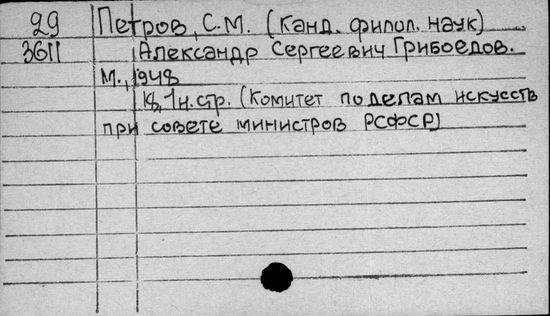 29 Петров, С.М. (Канд. филол. наук)
3611 Александр Сергеевич Грибоедов.
М., 1948
18, 1 н. стр. (Комитет по делам искусств
при совете министров РСФСР)